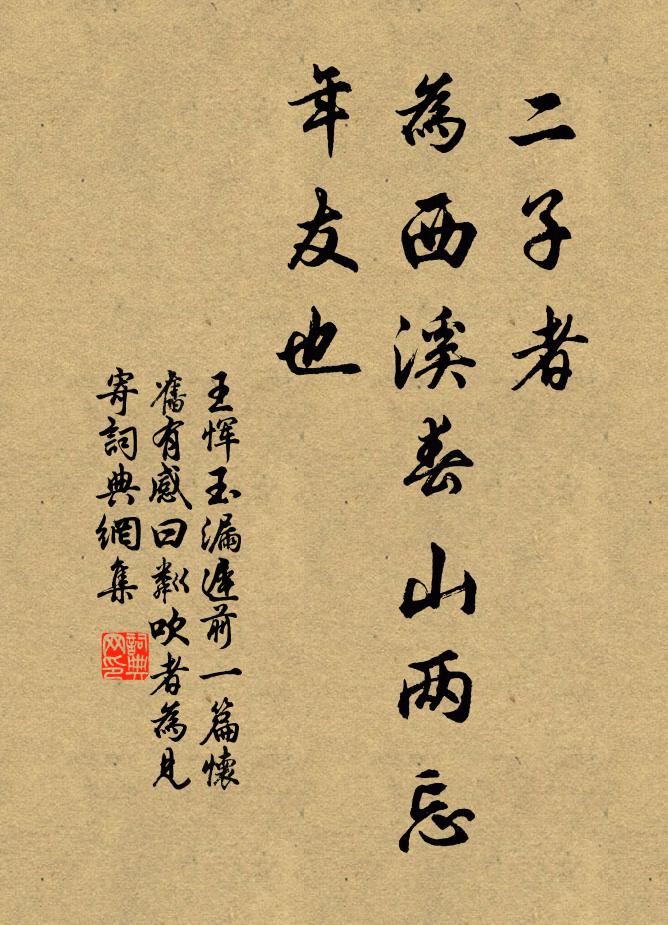 二子者
為西溪春山两忘
年友也
王恽玉漏遲前一篇懷
舊有感曰鄰吹者為見
寄詞典網集
詞典网印